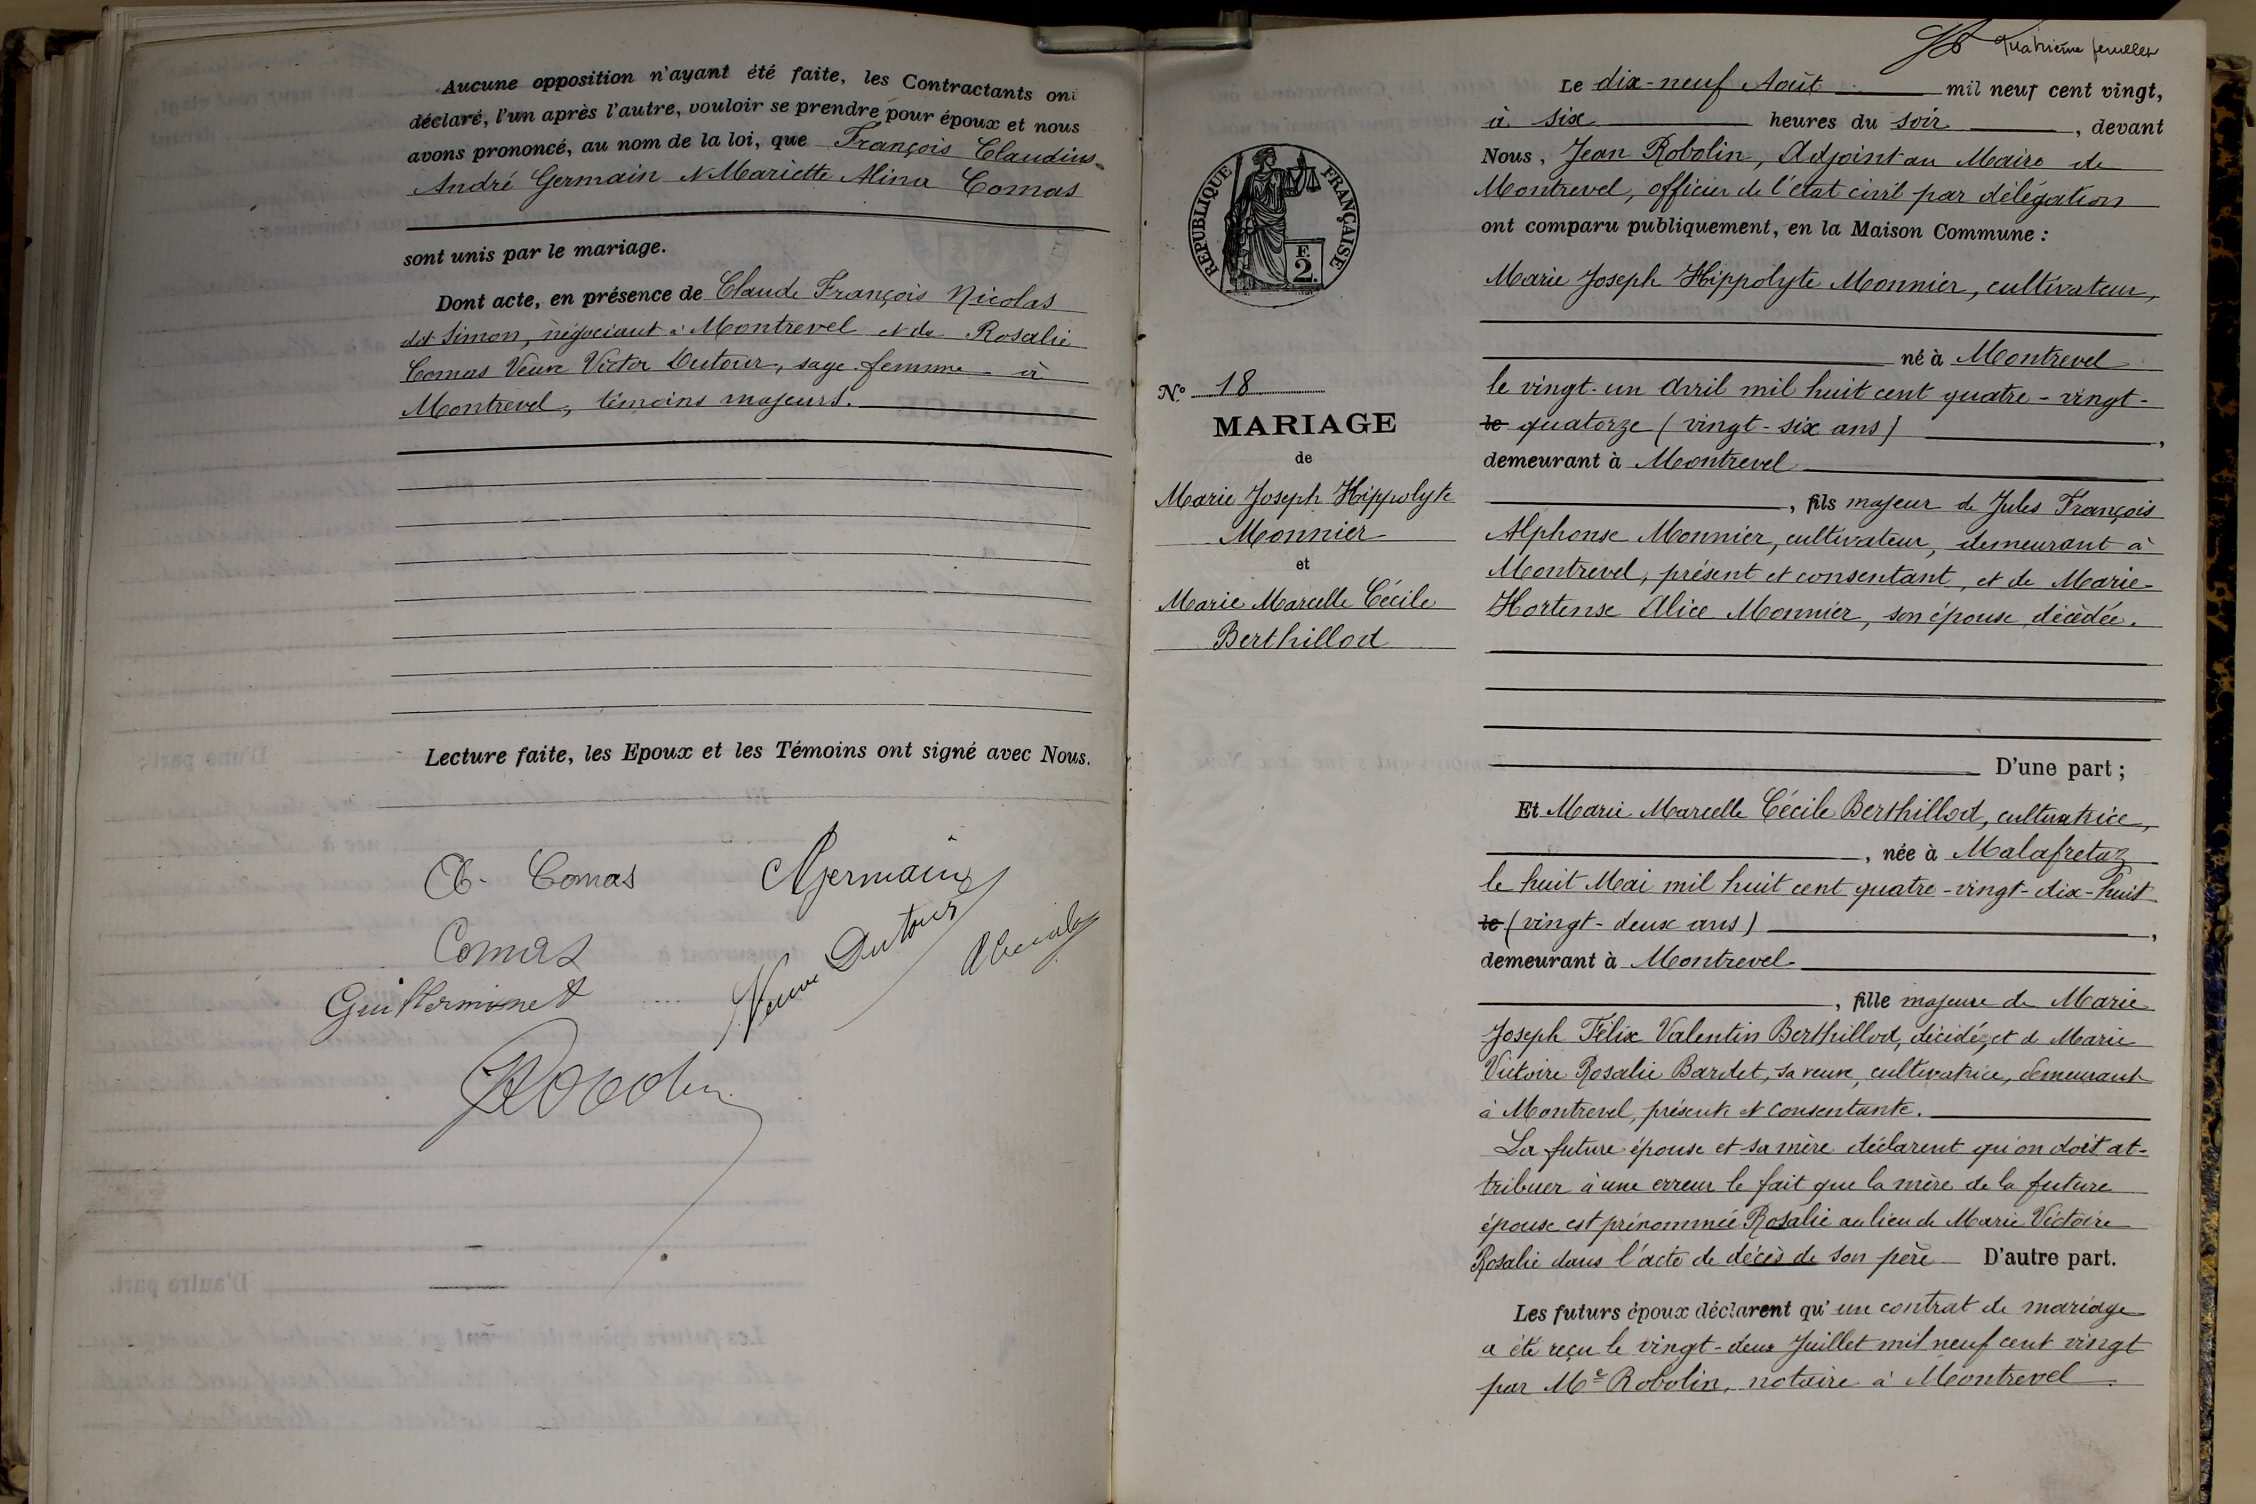 Aucune opposition n'ayant été faite, les Contractants ont
déclaré, l'un après l'autre, vouloir se prendre pour époux et nous
avons prononcé, au nom de la loi, que François Claudius
André Germain et Mariette Alina Comas
sont unis par le mariage.
Dont acte, en présence de Claude François Nicolas
dit Simon, négociant à Montrevel et de Rosalie
Comas Veuve Victor Dutour, sage femme à
Montrevel, témoins majeurs.
Lecture faite, les Epoux et les Témoins ont signé avec Nous.
Comas
AGermain
Comas
Veuve Dutour
Guillerminet
Quatrième feuillet
RÉPUBLIQUE FRANÇAISE
F.
2
N.º 18
MARIAGE
de
Marie Joseph Hippolyte
Monnier
et
Marie Marcelle Cécile
Berthillod
Le dix-neuf Août mil neuf cent vingt,
à six heures du soir, devant
Nous, Jean Robolin, Adjoint au Maire de
Montrevel, officier de l'état civil par délégation
ont comparu publiquement, en la Maison Commune :
Marie Joseph Hippolyte Monnier, cultivateur,
né à Montrevel
le vingt-un Avril mil huit cent quatre-vingt-
le quatorze (vingt-six ans),
demeurant à Montrevel
, fils majeur de Jules François
Alphonse Monnier, cultivateur, demeurant à
Montrevel, présent et consentant, et de Marie
Hortense Alice Monnier, son épouse, décédée.
D'une part ;
Et Marie Marcelle Cécile Berthillod, cultivatrice,
, née à Malafretaz
le huit Mai mil huit cent quatre-vingt-dix-huit
le (vingt-deux ans),
demeurant à Montrevel
, fille majeure de Marie
Joseph Félix Valentin Berthillod, décédé, et de Marie
Victoire Rosalie Bardet, sa veuve, cultivatrice, demeurant
à Montrevel, présente et consentante.
La future épouse et sa mère déclarent qu'on doit at-
tribuer à une erreur le fait que la mère de la future
épouse est prénommée Rosalie au lieu de Marie Victoire
Rosalie dans l'acte de décès de son père D'autre part.
Les futurs époux déclarent qu'un contrat de mariage
a été reçu le vingt-deux Juillet mil neuf cent vingt
par Me Robolin, notaire à Montrevel.